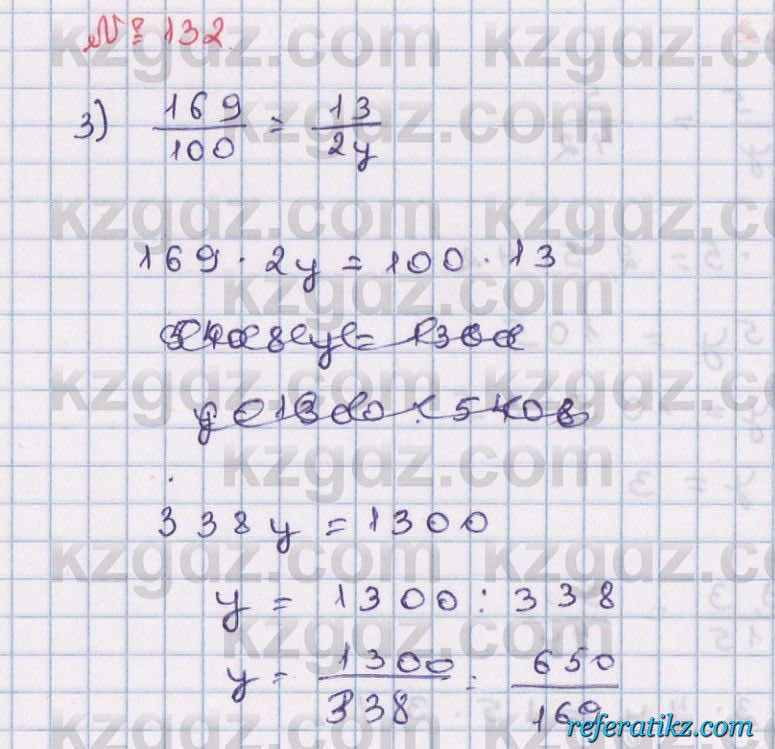 № 132
3) 169/100 = 13/2y
169 · 2y = 100 · 13
338y = 1300
y = 1300 : 338
y = 1300/338 = 650/169
kzgdz.com
referatikz.com